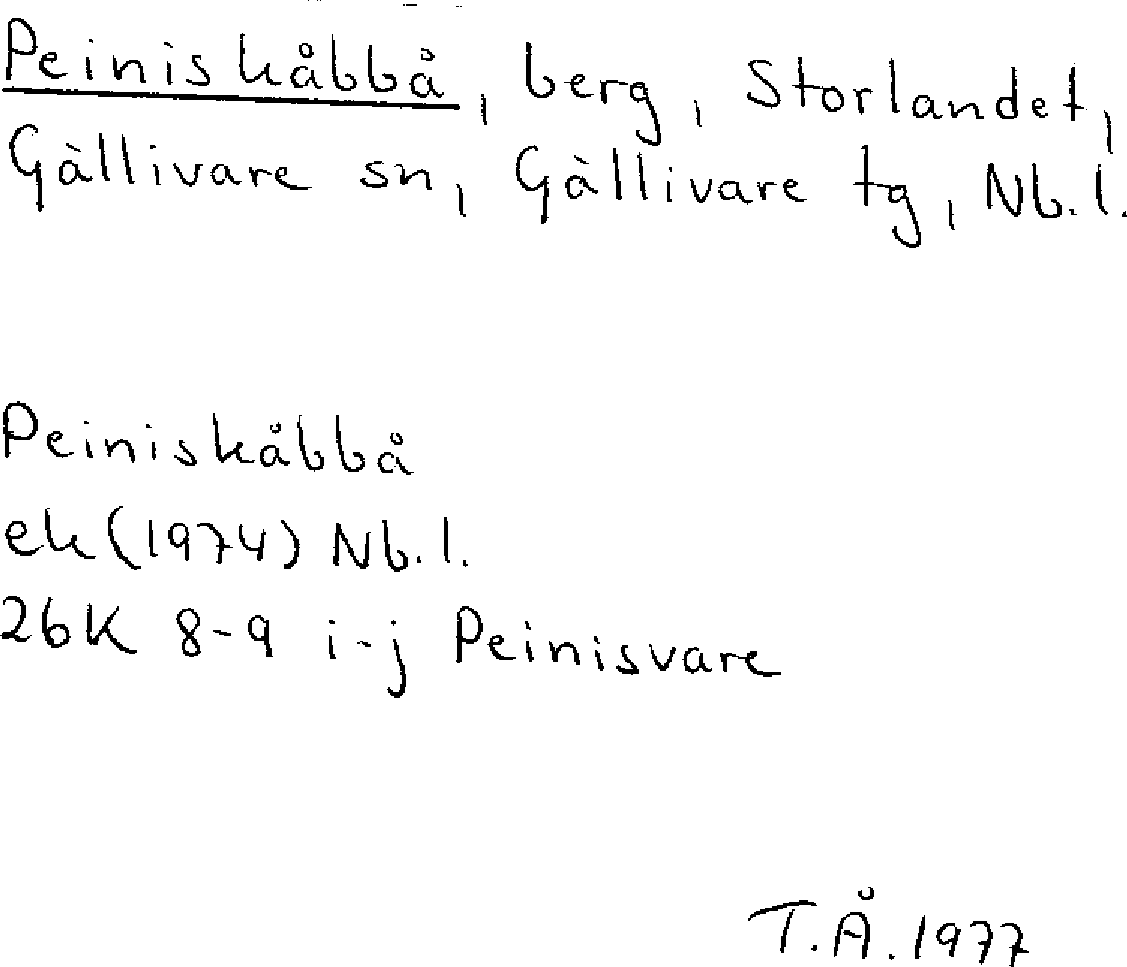 Peiniskåbbå, berg, Storlandet,
Gällivare sn, Gällivare tg, Nb.l.
Peiniskåbbå
ek (1974) Nb.l.
26K 8-9 i-j Peinisvare
T.Å. 1977